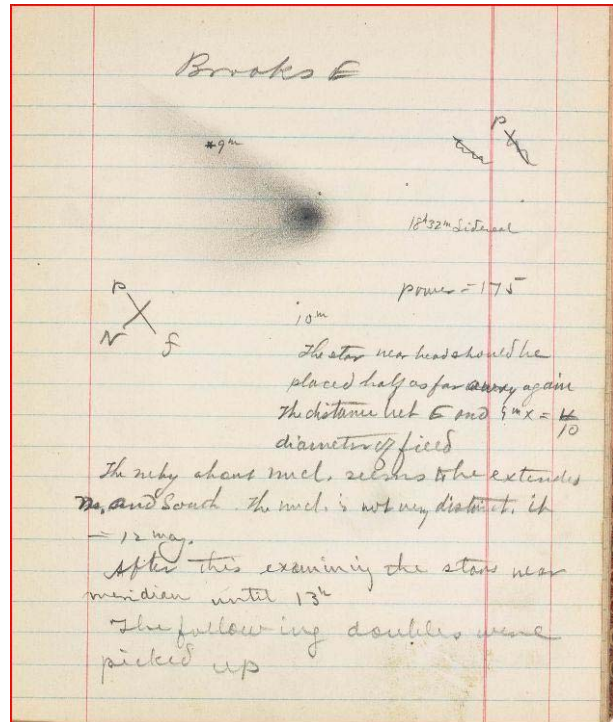 Brooks E
*9m
P
18h32m Sidereal
power = 175
P
N f
10m
The star near head should be
placed half as far away again
The distance bet E and 9m x = 4/10
diameter of field
The neby about nucl. seems to be extended
and South. The nucl. is not very distinct. it
= 12 mag.
After this examining the stars near
meridian until 13h
The following doubles were
picked up